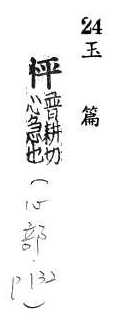 24 玉篇
怦
普耕切
心急也
(心部 P132)